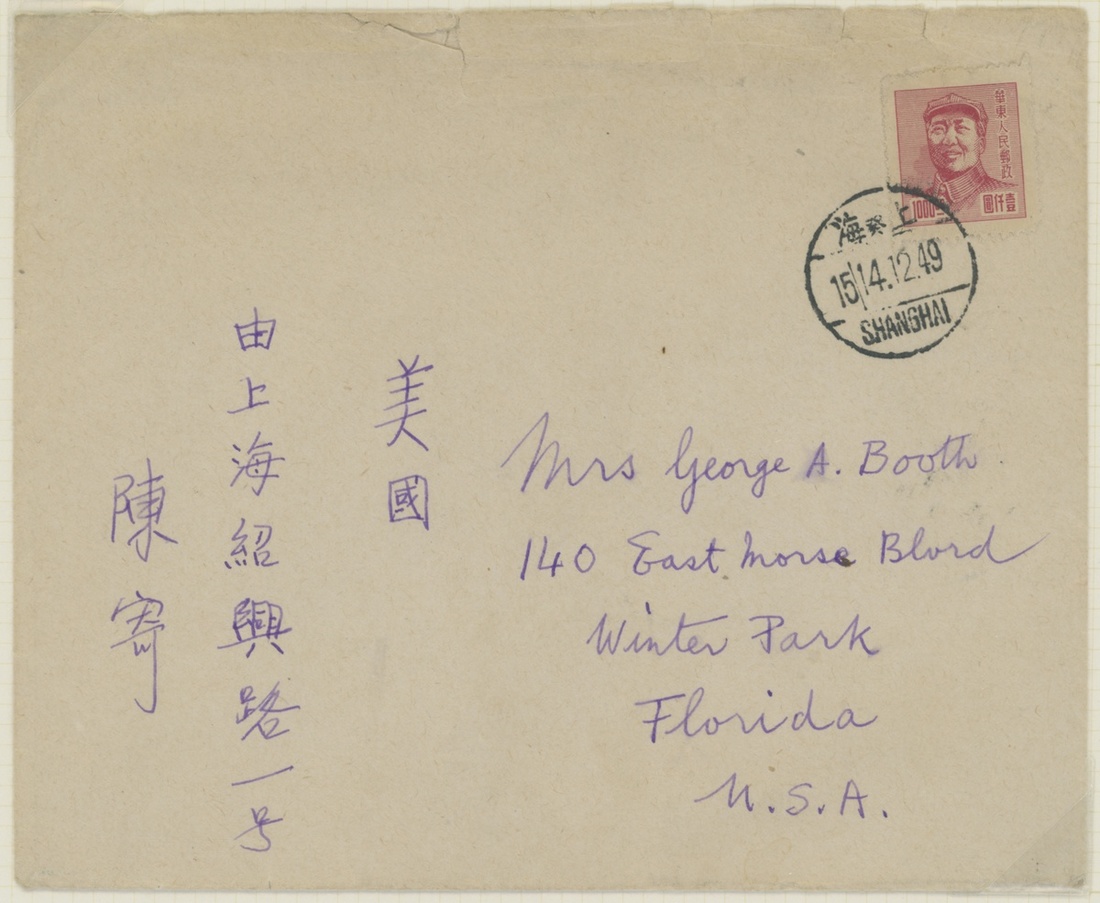 華東人民郵政
1000 壹仟圓
上 海
15 14.12.49
SHANGHAI
Mrs George A. Booth
140 East Morse Blvrd
Winter Park
Florida
U.S.A.
美國
由上海紹興路一号
陳寄